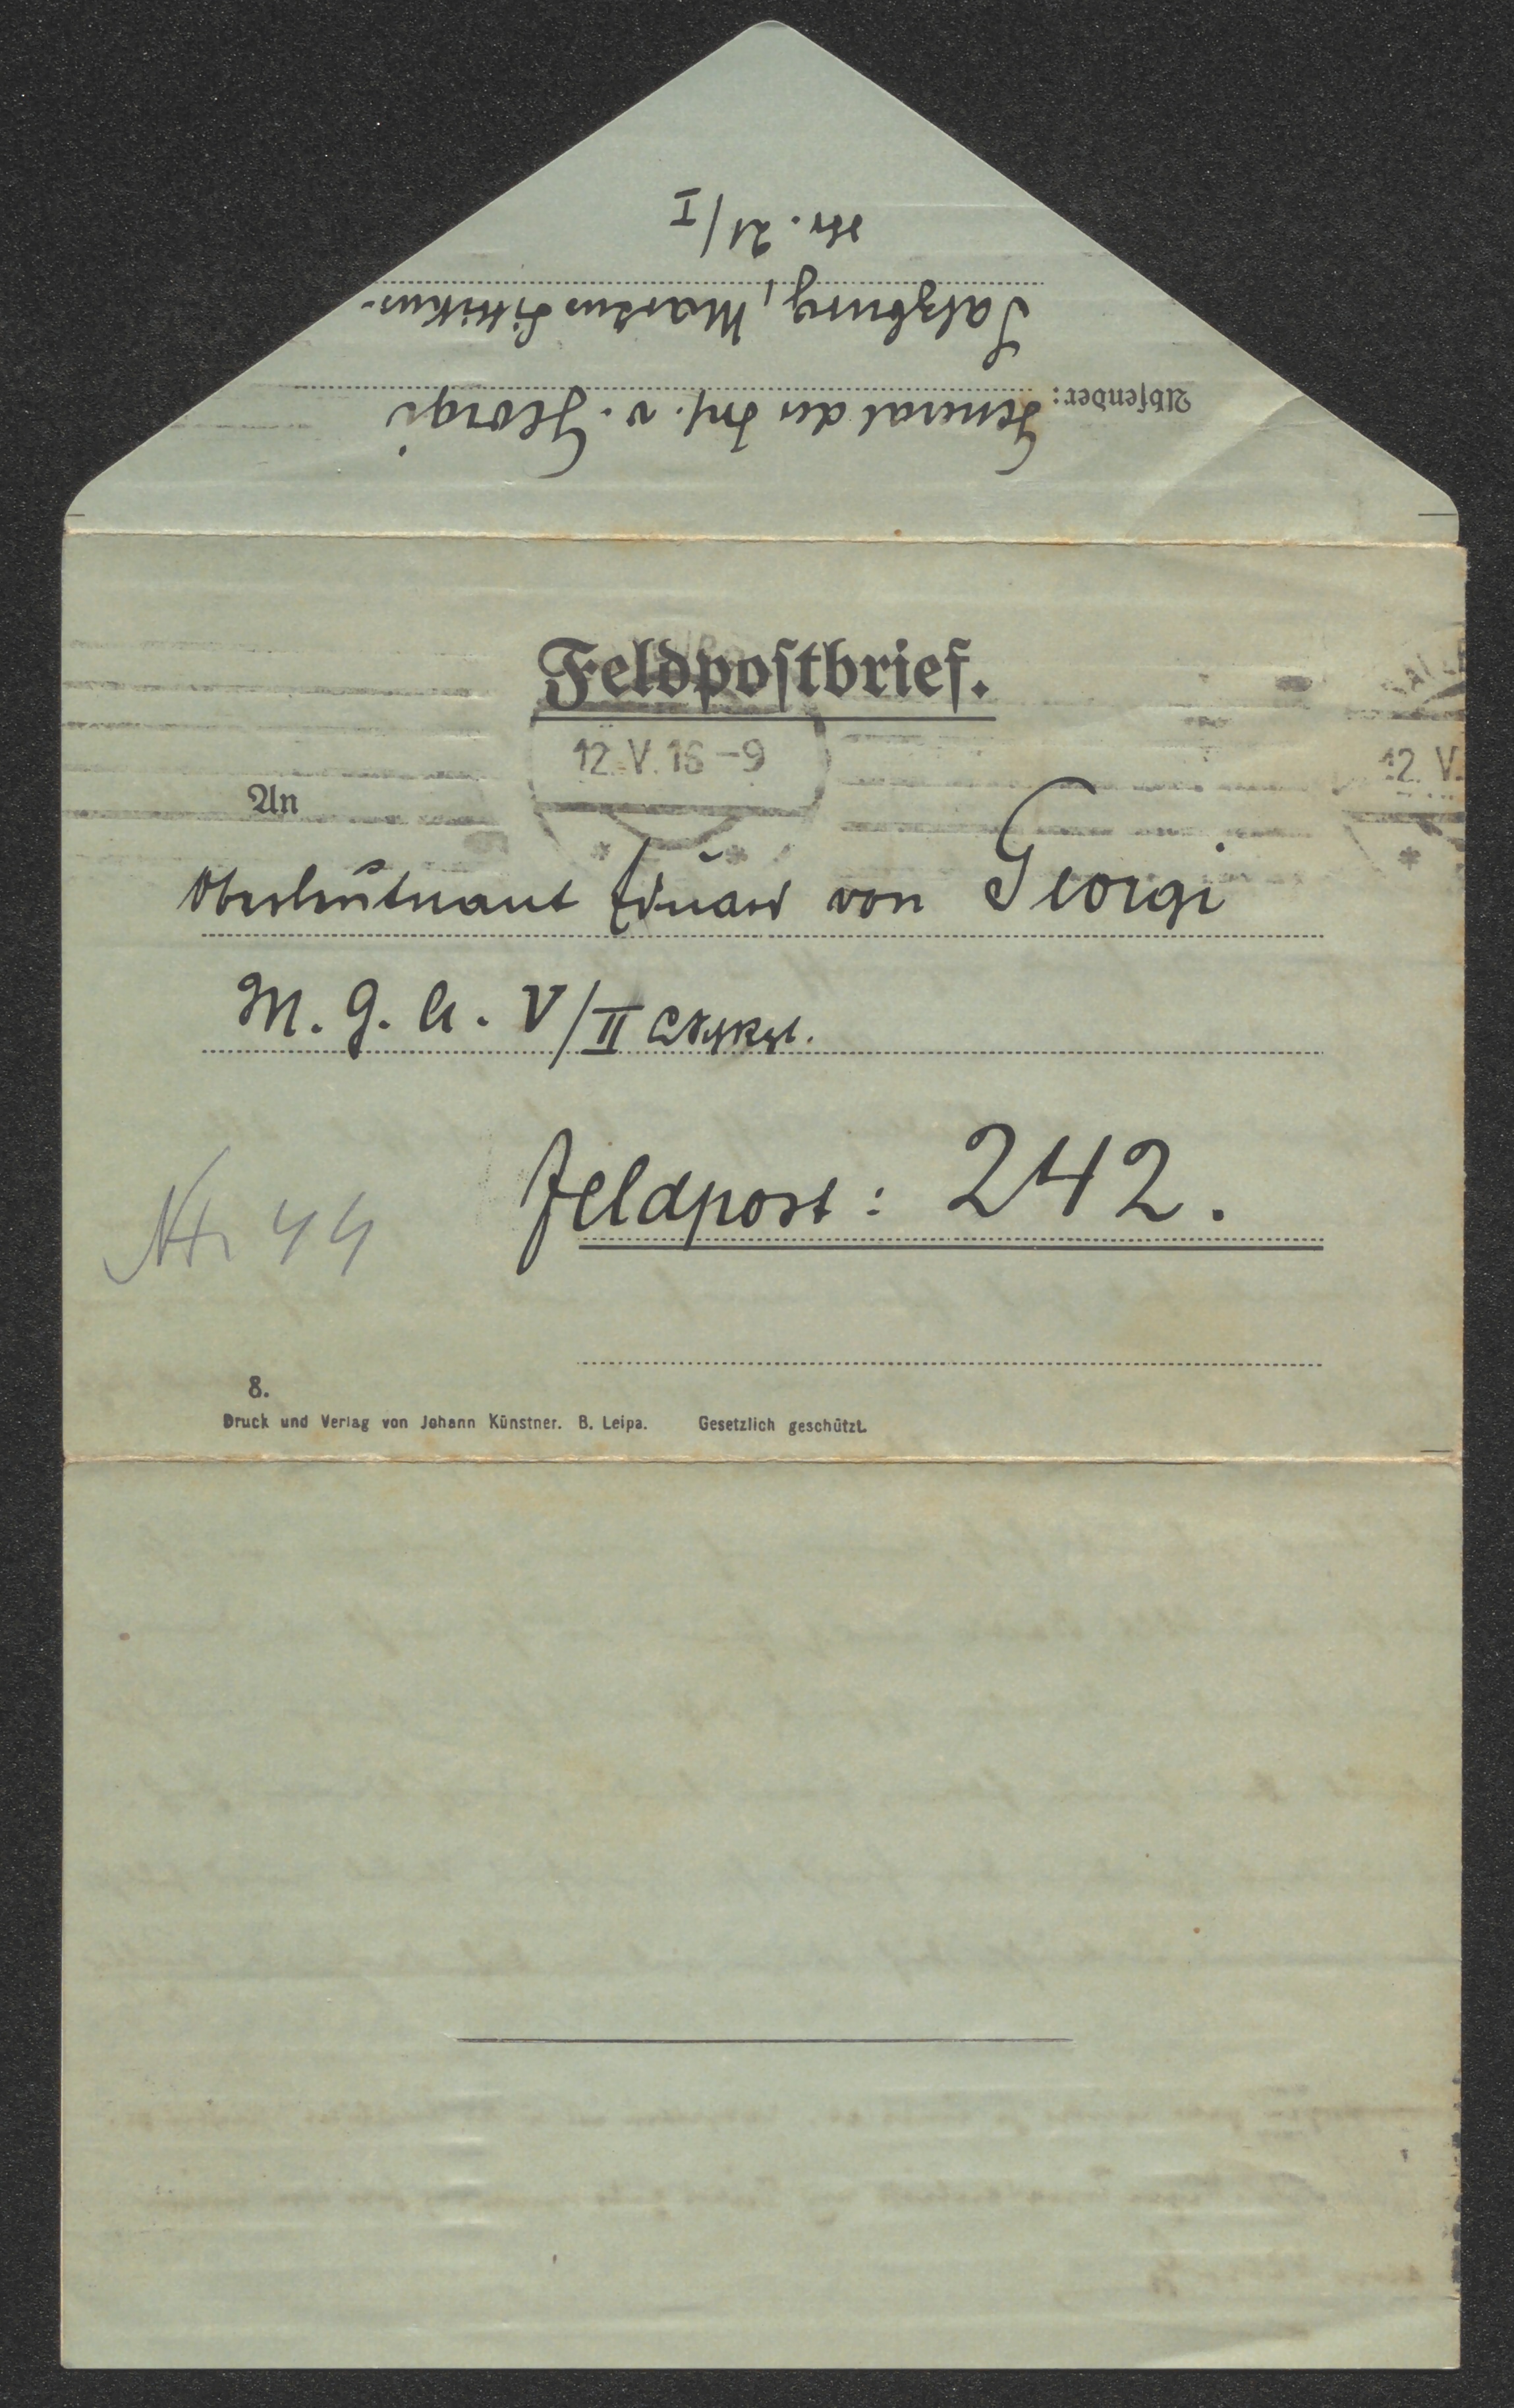 Absender: General der Inf. v. Georgi
Salzburg, Markus Sittikus-
str. 21/I
Feldpostbrief.
12.V.16-9
12.V.
An
Oberleutnant Eduard von Georgi
M.G.A. V/II
Feldpost: 242.
Nr 44
8.
Druck und Verlag von Johann Künstner. B. Leipa. Gesetzlich geschützt.